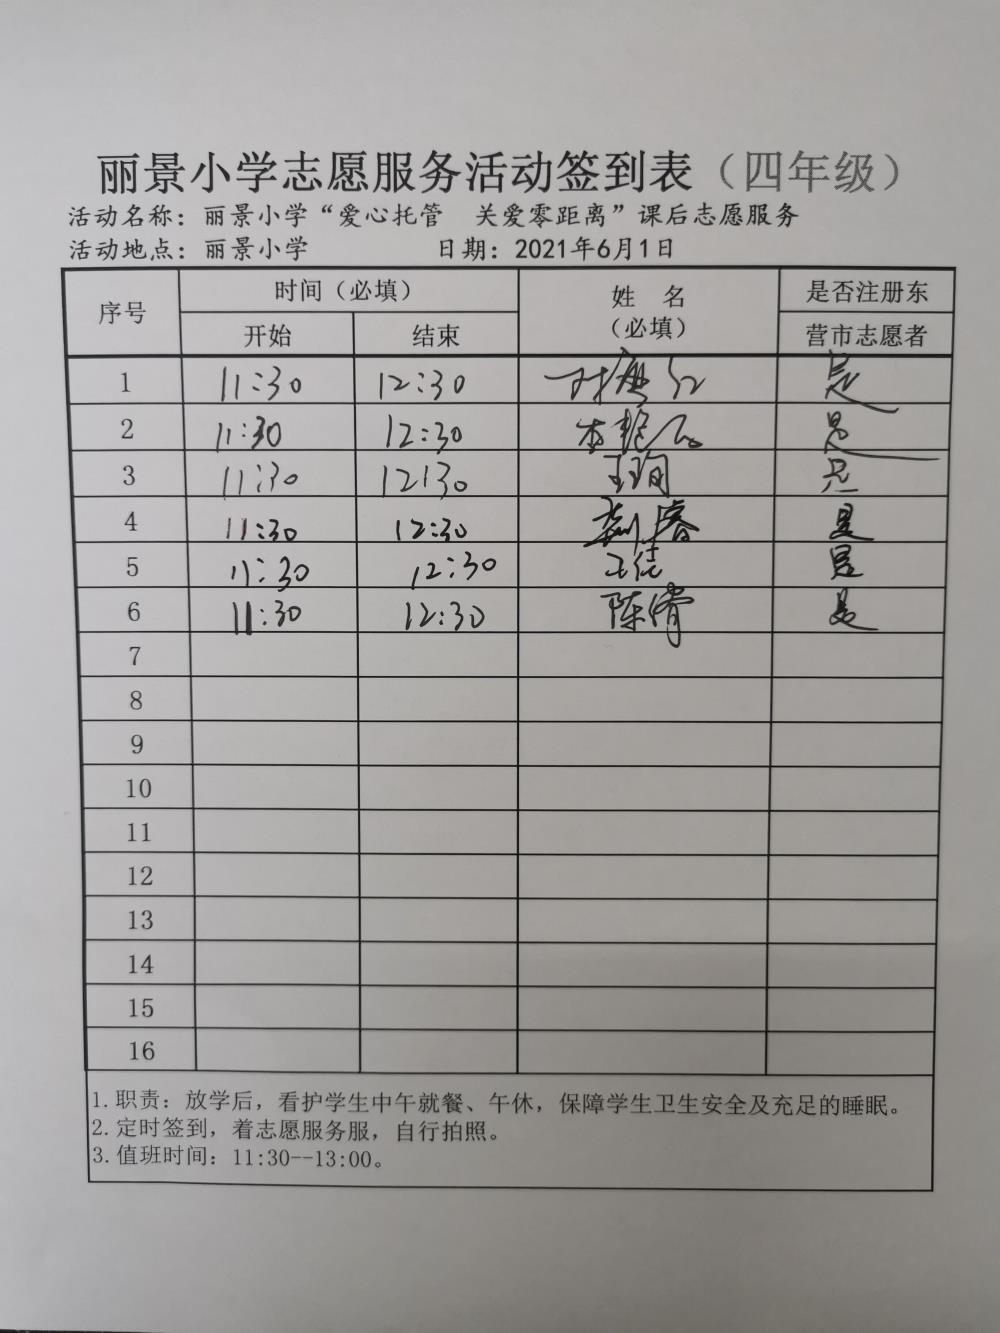 丽景小学志愿服务活动签到表（四年级）
活动名称：丽景小学“爱心托管　关爱零距离”课后志愿服务
活动地点：丽景小学　日期：2021年6月1日
序号 时间（必填） 姓　名（必填） 是否注册东营市志愿者
开始 结束
1 11:30 12:30 是
2 11:30 12:30 是
3 11:30 12:30 王珣 是
4 11:30 12:30 是
5 11:30 12:30 是
6 11:30 12:30 陈倩 是
7
8
9
10
11
12
13
14
15
16
1.职责：放学后，看护学生中午就餐、午休，保障学生卫生安全及充足的睡眠。
2.定时签到，着志愿服务服，自行拍照。
3.值班时间：11:30--13:00。